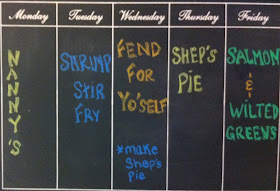 Monday Tuesday Wednesday Thursday Friday
NANNY'S
SHRIMP
STIR
FRY
FEND
FOR
YO'SELF
*make
Shep's
pie
SHEP'S
PIE
SALMON
&
WILTED
GREENS